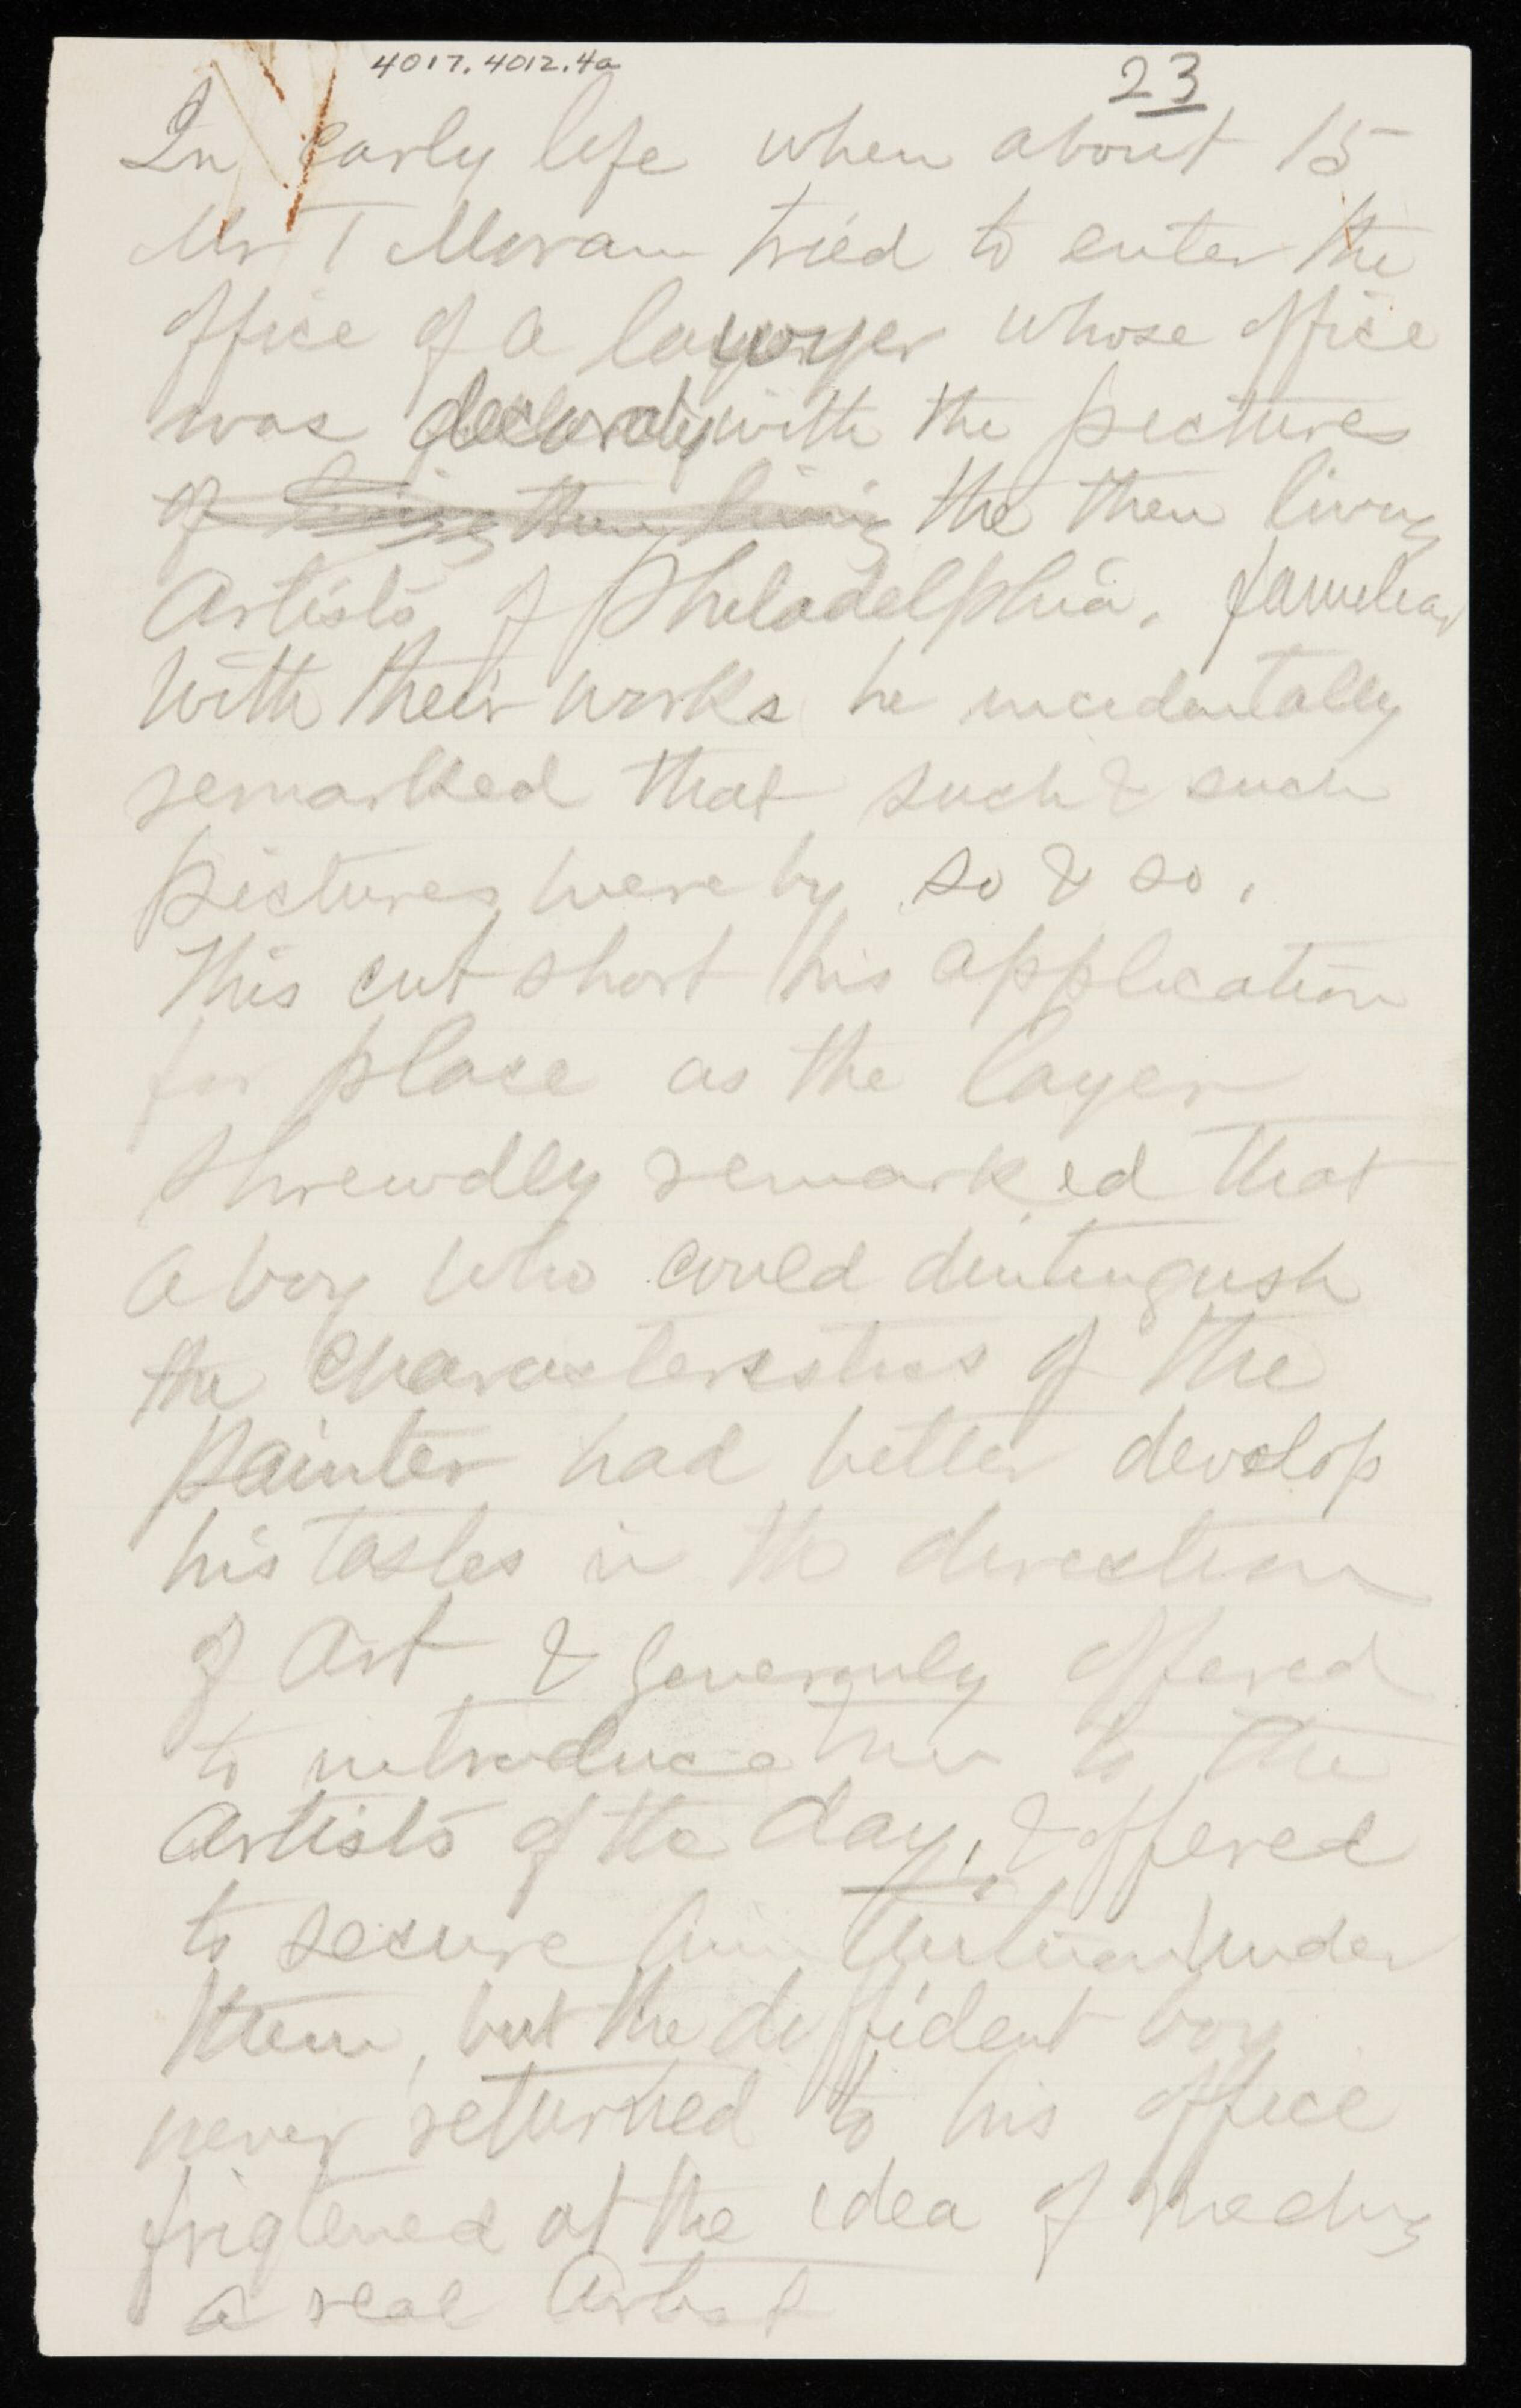 4017.4012.4a
23
In early life when about 15
Mr T Moran tried to enter the
office of a lawyer whose office
was with the pictures
of living then living the then living
Artists of Philadelphia. familiar
with their works he incidentally
remarked that such & such
pictures were by so & so.
This cut short his application
for place as the layer
shrewdly remarked that
a boy who could dintingush
the characteristics of the
painter had better develop
his tastes in the direction
of Art & generously offered
to introduce him to the
Artists of the day, & offered
to secure him tuition under
them, but the diffident boy
never returned to his office
frigtened at the idea of meeting
a real Artist